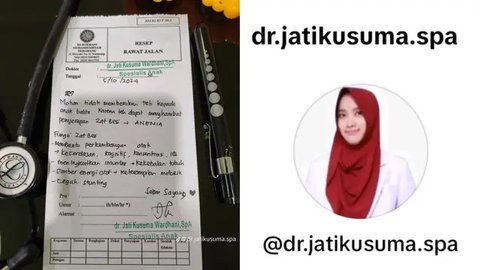 RM.RI.RJ.P.30.1
RS ROEMANI
MUHAMMADIYAH
SEMARANG
RESEP
RAWAT JALAN
Dokter :
dr. Jati Kusuma Wardhani,SpA
Spesialis Anak
Tanggal : 5/10/2024
R/
Mohon tidak memberikan teh kepada
anak balita karena teh dapat menghambat
penyerapan ZAT BESI → ANEMIA
Fungsi ZAT BESI
Membantu perkembangan otak
→ kecerdasan, kognitif, konsentrasi, IQ
meningkatkan imunitas → kekebalan tubuh
Sumber energi otot → keterampilan motorik
Cegah stunting
Salam Sayang
Pro :
Umur : (th/bln/hr *)
Alamat :
dr. Jati Kusuma Wardhani,SpA
Spesialis Anak
dr.jatikusuma.spa
dr.jatikusuma.spa
@dr.jatikusuma.spa